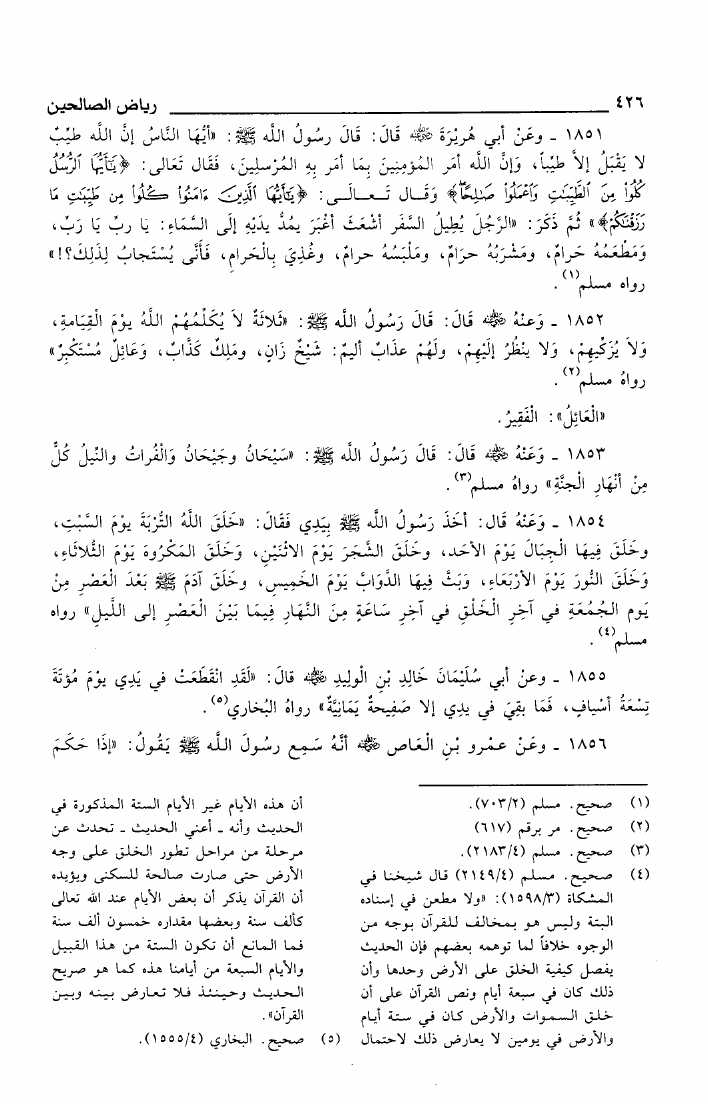 ٤٢٦ رياض الصالحين
١٨٥١ ـ وعَنْ أبي هُرَيْرَةَ ﵁ قَالَ: قَالَ رسُولُ اللَّه ﷺ: «أيُّهَا النَّاسُ إنَّ اللَّه طيِّبٌ
لا يَقْبَلُ إلاَّ طيِّباً، وَإنَّ اللَّه أمَر المُؤمِنِينَ بِمَا أمَر بِهِ المُرْسلِينَ، فَقَال تَعَالى: ﴿يَٰٓأَيُّهَا ٱلرُّسُلُ
كُلُوا۟ مِنَ ٱلطَّيِّبَٰتِ وَٱعْمَلُوا۟ صَٰلِحًا﴾ وَقَـال تَـعـالَـى: ﴿يَٰٓأَيُّهَا ٱلَّذِينَ ءَامَنُوا۟ كُلُوا۟ مِن طَيِّبَٰتِ مَا
رَزَقْنَٰكُمْ﴾» ثُمَّ ذَكَرَ: «الرَّجُلَ يُطِيلُ السَّفَر أشْعَثَ أغْبَرَ يمُدُّ يدَيْهِ إلَى السَّمَاءِ: يا ربِّ يَا رَبِّ،
وَمَطْعَمُهُ حَرامٌ، ومَشْرَبُهُ حرَامٌ، ومَلْبَسُهُ حرامٌ، وغُذِيَ بِالْحَرامِ، فَأَنَّى يُسْتَجابُ لِذَلِكَ؟!»
رواه مسلم(١).
١٨٥٢ ـ وَعنْهُ ﵁ قَالَ: قَالَ رَسُولُ اللَّه ﷺ: «ثَلاثَةٌ لاَ يُكَلِّمُهُمْ اللَّهُ يوْمَ الْقِيَامةِ،
وَلاَ يُزَكِّيهِمْ، وَلا ينْظُرُ إلَيْهِمْ، ولَهُمْ عذَابٌ أليمٌ: شَيْخٌ زَانٍ، ومَلِكٌ كَذَّابٌ، وَعَائِلٌ مُسْتَكْبِرٌ»
رواهُ مسلم(٢).
«الْعَائِلُ»: الْفَقِيرُ.
١٨٥٣ ـ وَعَنْهُ ﵁ قَالَ: قَالَ رَسُولُ اللَّه ﷺ: «سَيْحَانُ وجَيْحَانُ وَالْفُراتُ والنِّيلُ كُلٌّ
مِنْ أنْهَارِ الْجنَّةِ» رواهُ مسلم(٣).
١٨٥٤ ـ وَعَنْهُ قَال: أخَذَ رَسُولُ اللَّه ﷺ بِيَدِي فَقَالَ: «خَلَقَ اللَّهُ التُّرْبَةَ يوْمَ السَّبْتِ،
وخَلَقَ فِيهَا الْجِبَالَ يَوْمَ الأحَد، وخَلَقَ الشَّجَرَ يَوْمَ الاثْنَيْنِ، وَخَلَقَ المَكْرُوهَ يَوْمَ الثُّلاثَاءِ،
وَخَلَقَ النُّورَ يَوْمَ الأرْبَعَاءِ، وَبَثَّ فِيهَا الدَّوَابَّ يَوْمَ الخَمِيسِ، وخَلَقَ آدَمَ ﷺ بَعْدَ الْعَصْرِ مِنْ
يَوم الجُمُعَةِ في آخِرِ الْخَلْقِ في آخِرِ سَاعَةٍ مِنَ النَّهَارِ فِيمَا بَيْنَ الْعَصْرِ إلى اللَّيلِ» رواه
مسلم(٤).
١٨٥٥ ـ وعنْ أبي سُلَيْمَانَ خَالِدِ بْنِ الْولِيدِ ﵁ قالَ: «لَقَدِ انْقَطَعَتْ في يَدِي يوْمَ مُؤتَةَ
تِسْعَةُ أسْيافٍ، فَمَا بقِيَ في يدِي إلا صَفِيحةٌ يَمَانِيَّةٌ» رواهُ البُخاري(٥).
١٨٥٦ ـ وعَنْ عمْرو بْنِ الْعَاص ﵁ أنَّهُ سَمِع رسُولَ اللَّـه ﷺ يَقُولُ: «إذَا حَكَمَ
(١) صحيح. مسلم (٧٠٣/٢).
(٢) صحيح. مر برقم (٦١٧)
(٣) صحيح. مسلم (٢١٨٣/٤).
(٤) صحيح. مسلم (٢١٤٩/٤) قال شيخنا في
المشكاة (١٥٩٨/٣): «ولا مطعن في إسناده
البتة وليس هو بمخالف للقرآن بوجه من
الوجوه خلافاً لما توهمه بعضهم فإن الحديث
يفصل كيفية الخلق على الأرض وحدها وأن
ذلك كان في سبعة أيام ونص القرآن على أن
خلق السموات والأرض كان في ستة أيام
والأرض في يومين لا يعارض ذلك لاحتمال
أن هذه الأيام غير الأيام الستة المذكورة في
الحديث وأنه ـ أعني الحديث ـ تحدث عن
مرحلة من مراحل تطور الخلق على وجه
الأرض حتى صارت صالحة للسكنى ويؤيده
أن القرآن يذكر أن بعض الأيام عند الله تعالى
كألف سنة وبعضها مقداره خمسون ألف سنة
فما المانع أن تكون الستة من هذا القبيل
والأيام السبعة من أيامنا هذه كما هو صريح
الحديث وحينئذ فلا تعارض بينه وبين
القرآن».
(٥) صحيح. البخاري (١٥٥٥/٤).